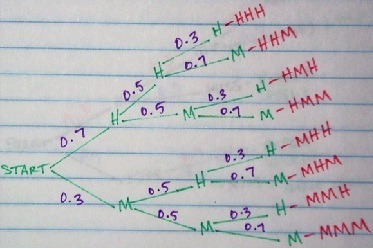 0.3 H - HHH
H 0.7 M - HHM
0.5
H 0.5 M 0.3 H - HMH
0.7 M - HMM
0.7
START
0.3
0.3 H - MHH
0.5 H 0.7 M - MHM
M
0.5 M 0.3 H - MMH
0.7 M - MMM